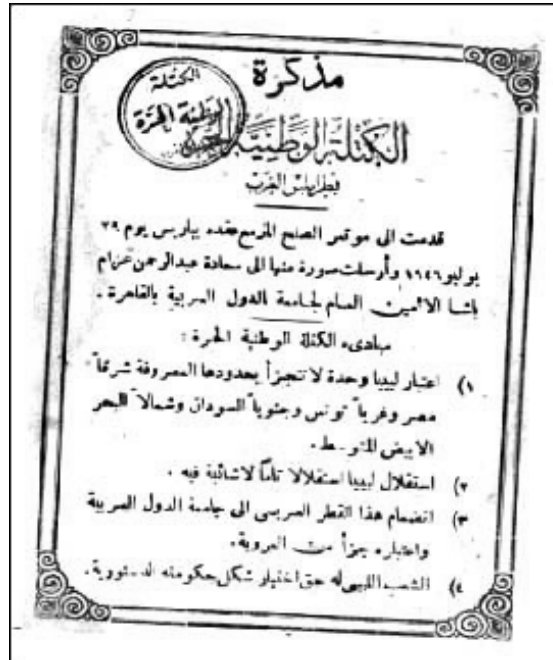 مذكرة
الكتلة
الوطنية الحرة
الكتلة الوطنية الحرة
طرابلس الغرب
قدمت الى مؤتمر الصلح المزمع عقده بباريس يوم ٢٩
يوليو ١٩٤٦ وأرسلت صورة منها الى سعادة عبدالرحمن عزام
باشا الأمين العام لجامعة الدول العربية بالقاهرة .
مبادىء الكتلة الوطنية الحرة :
١) اعتبار ليبيا وحدة لا تتجزأ بحدودها المعروفة شرقاً
مصر وغرباً تونس وجنوباً السودان وشمالاً البحر
الابيض المتوسط .
٢) استقلال ليبيا استقلالا تاماً لاشائبة فيه .
٣) انضمام هذا القطر العربى الى جامعة الدول العربية
واعتباره جزأ من العروبة .
٤) الشعب الليبى له حق اختيار شكل حكومته الدستورية .